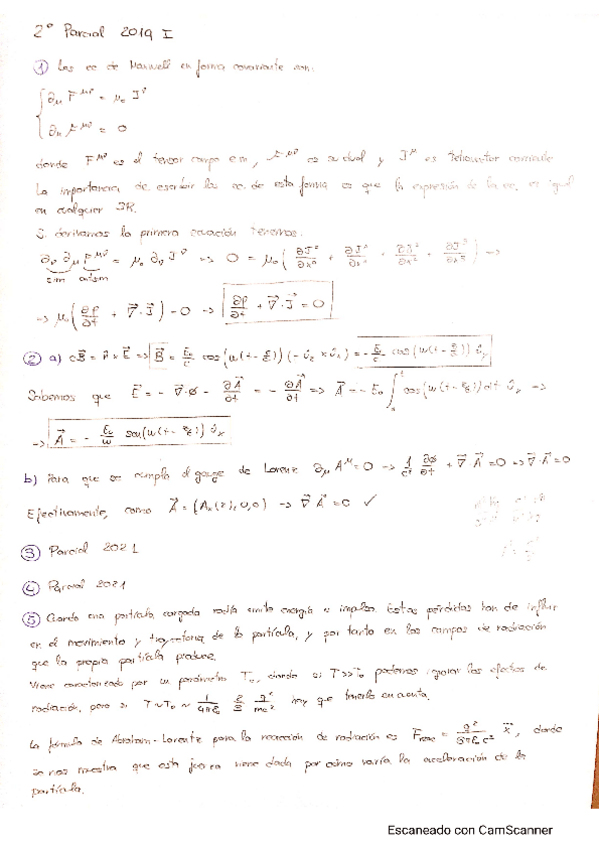 2º Parcial 2019 I
① Las ec de Maxwell en forma covariante son:
∂μ F^μν = μ₀ J^ν
∂μ 𝓕^μν = 0
donde F^μν es el tensor campo em, 𝓕^μν es su dual y J^μ es tetravector corriente
La importancia de escribir las ec. de esta forma es que la expresión de la ec. es igual
en cualquier SR.
Si derivamos la primera ecuación tenemos:
∂ν ∂μ F^μν = μ₀ ∂ν J^ν → 0 = μ₀ ( ∂J⁰/∂x⁰ + ∂J¹/∂x¹ + ∂J²/∂x² + ∂J³/∂x³ ) →
sim antisim
→ μ₀ ( ∂ρ/∂t + ∇·J ) = 0 → ∂ρ/∂t + ∇·J = 0
② a)
Sabemos que E = - ∇·Ø - ∂A/∂t = - ∂A/∂t
b) Para que se cumpla el gauge de Lorenz ∂μ A^μ = 0 → 1/c² ∂ø/∂t + ∇ A = 0 → ∇·A = 0
Efectivamente, como A = (Ax(z), 0, 0) → ∇ A = 0 ✓
③ Parcial 2021
④ Parcial 2021
⑤ Cuando una partícula cargada radia emite energía e impulso. Estas pérdidas han de influir
en el movimiento y trayectoria de la partícula, y por tanto en los campos de radiación
que la propia partícula produce.
Viene caracterizado por un parámetro T₀, donde si T>>T₀ podemos ignorar los efectos de
radiación, pero si T~T₀ hay que tenerlo en cuenta.
La fórmula de Abraham-Lorentz para la reacción de radiación es , donde
se nos muestra que esta fuerza viene dada por cómo varía la aceleración de la
partícula.
Escaneado con CamScanner